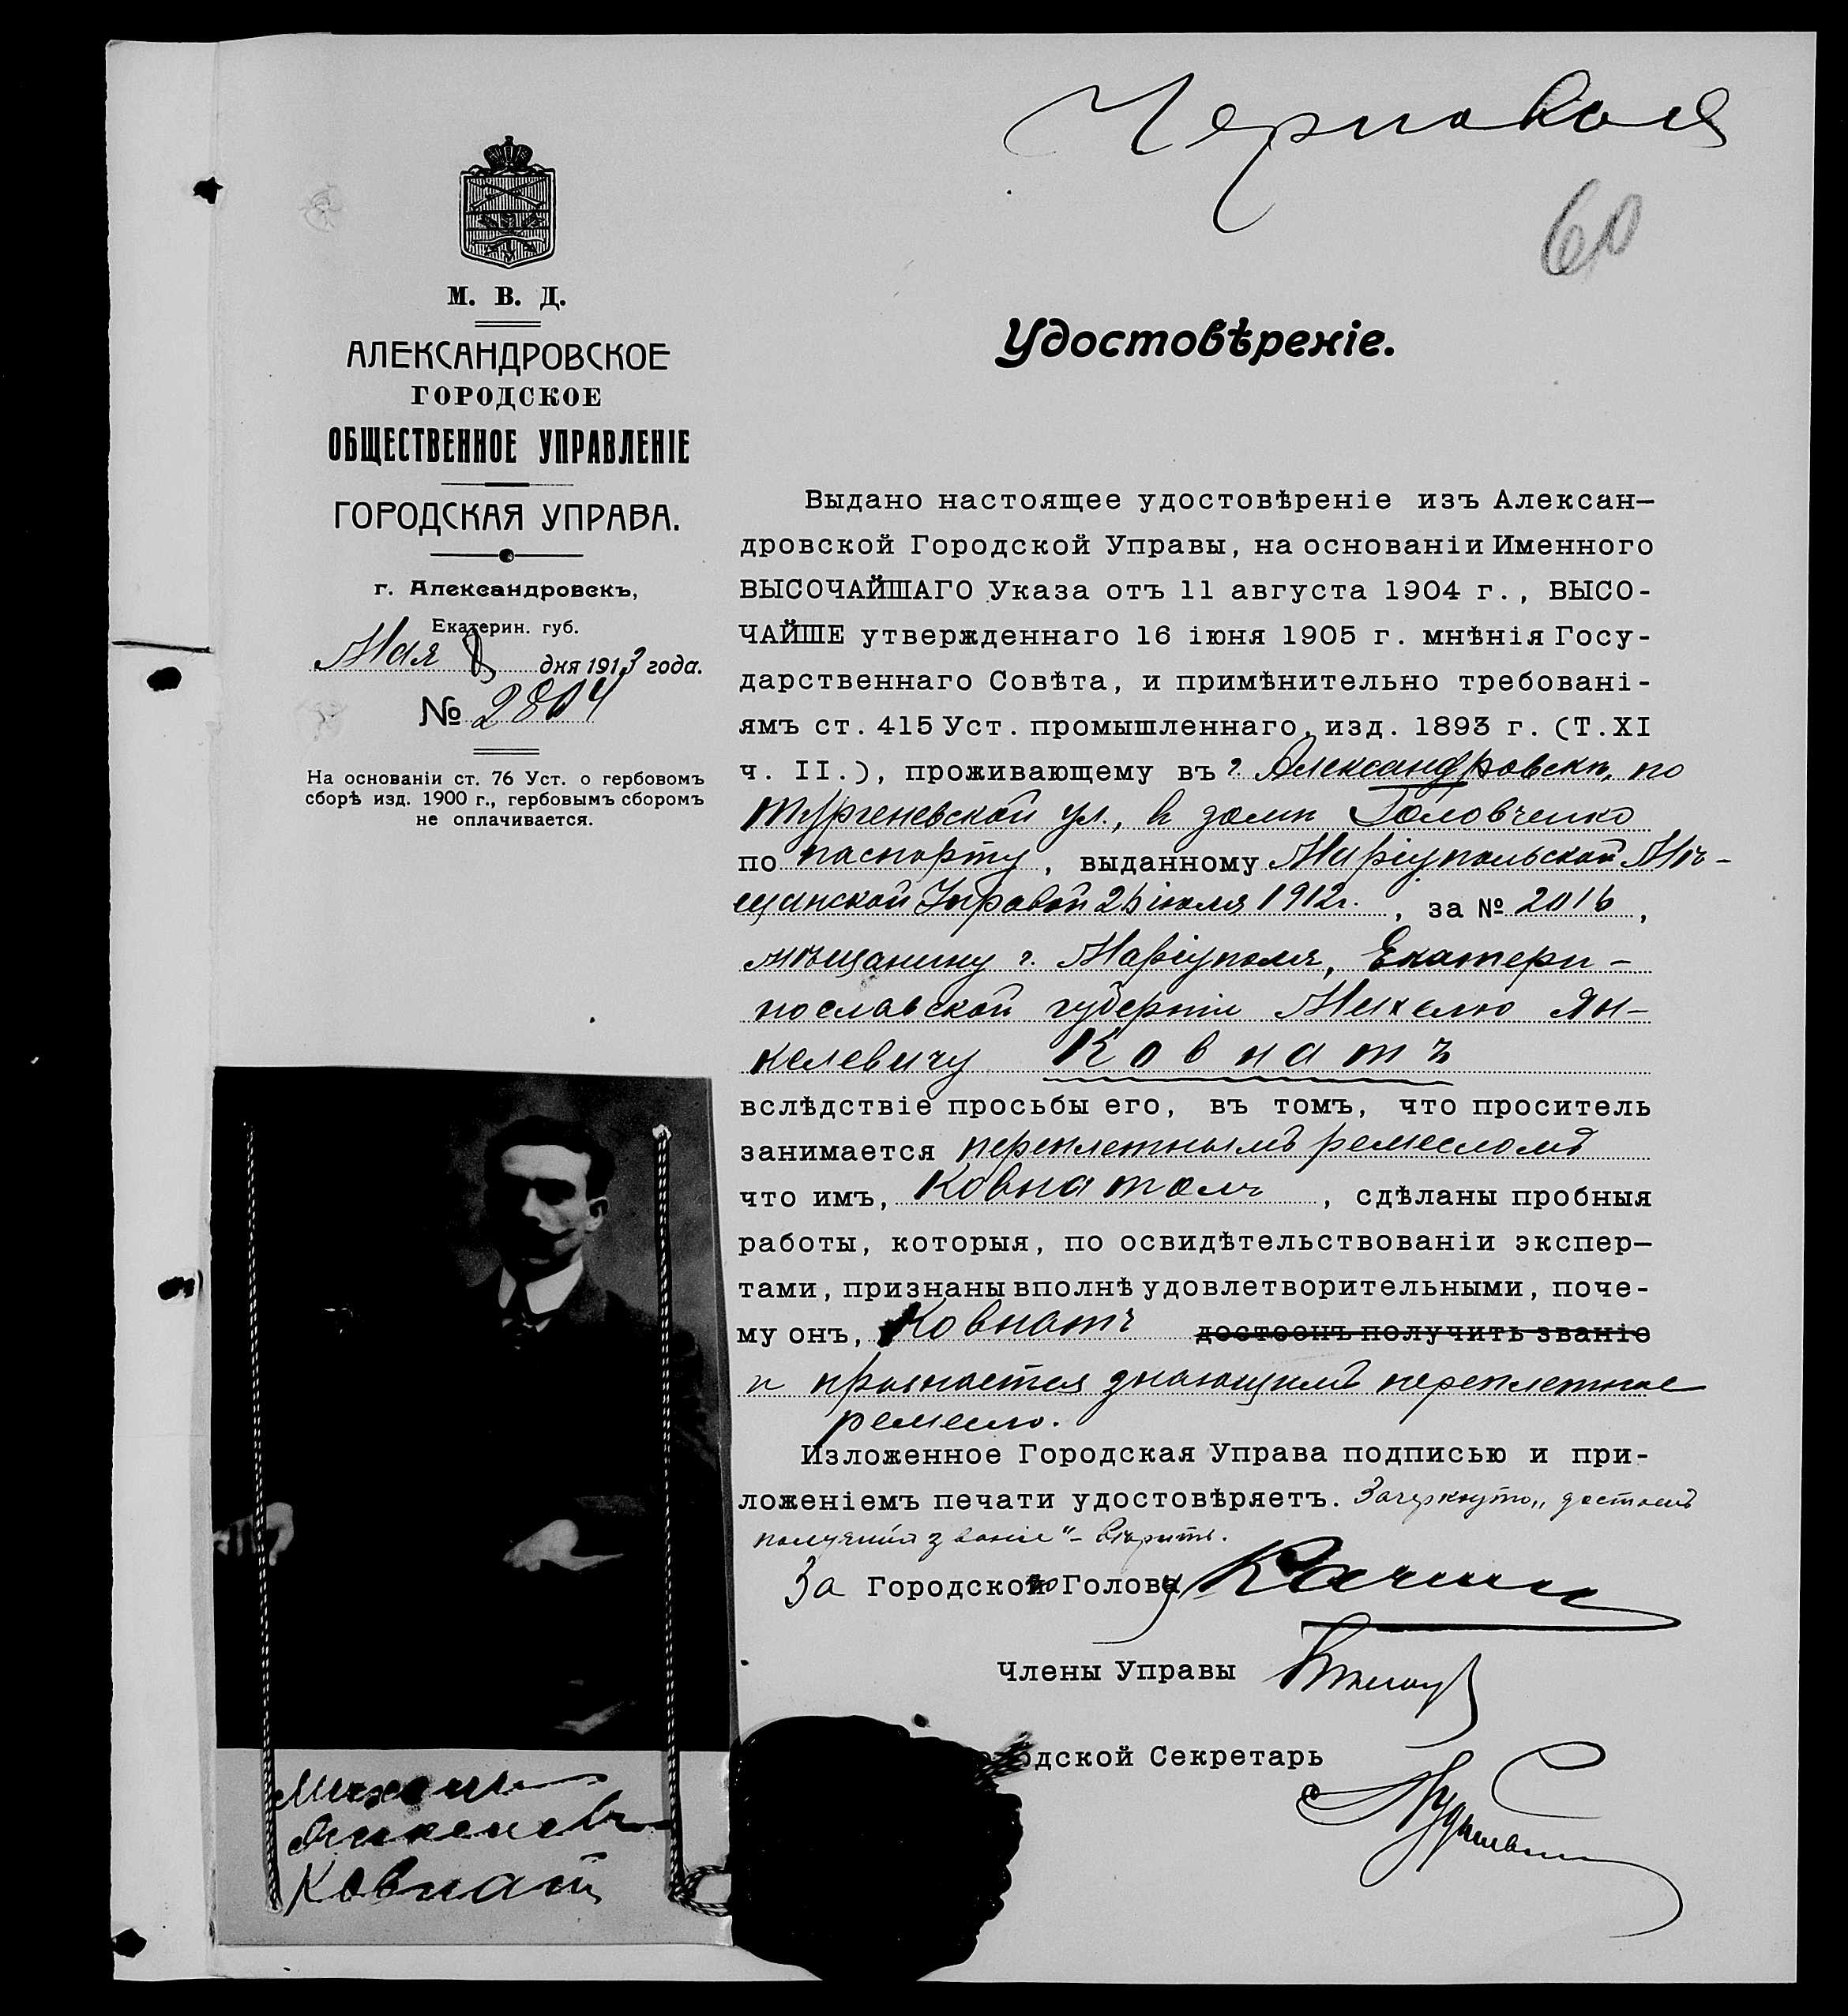 Черновая
60
М. В. Д.
АЛЕКСАНДРОВСКОЕ
ГОРОДСКОЕ
ОБЩЕСТВЕННОЕ УПРАВЛЕНІЕ
ГОРОДСКАЯ УПРАВА.
г. Александровскъ,
Екатерин. губ.
Мая 8 дня 1913 года.
№ 2804
На основаніи ст. 76 Уст. о гербовомъ
сборѣ изд. 1900 г., гербовымъ сборомъ
не оплачивается.
Удостовѣреніе.
Выдано настоящее удостовѣреніе изъ Алексан-
дровской Городской Управы, на основаніи Именного
ВЫСОЧАЙШАГО Указа отъ 11 августа 1904 г., ВЫСО-
ЧАЙШЕ утвержденнаго 16 іюня 1905 г. мнѣнія Госу-
дарственнаго Совѣта, и примѣнительно требовані-
ямъ ст. 415 Уст. промышленнаго, изд. 1893 г. (Т. XI
ч. II.), проживающему въ г. Александровскѣ, по
Тургеневской ул., в домѣ Головченко
по паспорту, выданному Маріупольской Мѣ-
щанской Управой 26 іюля 1912 г., за № 2016,
мѣщанину г. Маріуполя, Екатери-
нославской губерніи Михелю Ян-
келевичу Ковнатъ
вслѣдствіе просьбы его, въ томъ, что проситель
занимается переплетнымъ ремесломъ
что имъ, Ковнатомъ, сдѣланы пробныя
работы, которыя, по освидѣтельствованіи экспер-
тами, признаны вполнѣ удовлетворительными, поче-
му онъ, Ковнатъ достоенъ получить званіе
и признается знающимъ переплетное
ремесло.
Изложенное Городская Управа подписью и при-
ложеніемъ печати удостовѣряетъ. Зачеркнуто „достоенъ
получить званіе“ - вѣрить.
За Городского Голову
Члены Управы
Городской Секретарь
Михель
Янкелевъ
Ковнатъ